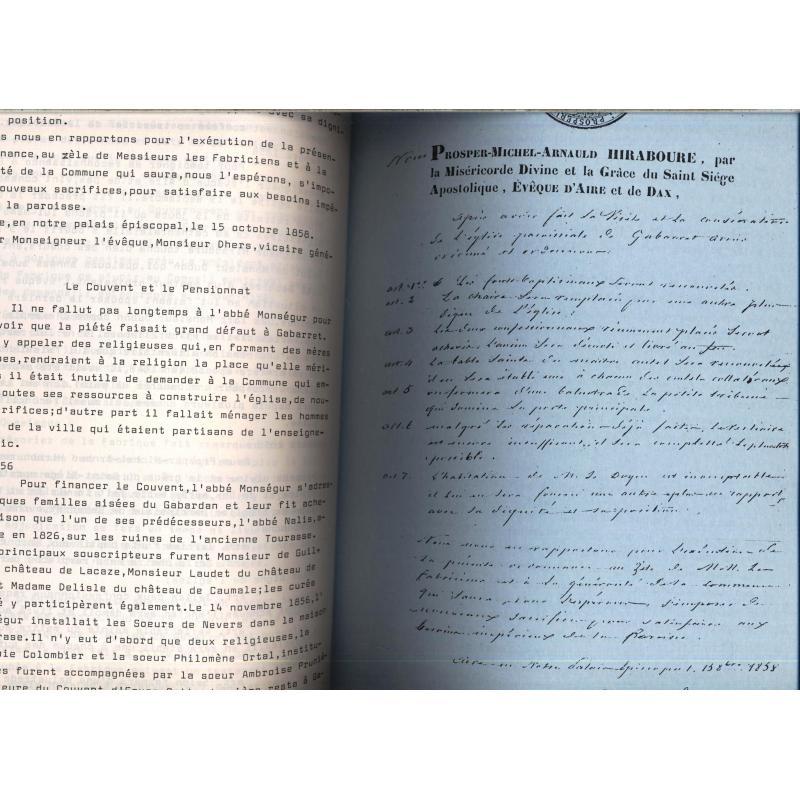 avec sa digni-
position.
s nous en rapportons pour l'exécution de la présen-
nance,au zèle de Messieurs les Fabriciens et à la
té de la Commune qui saura,nous l'espérons, s'impo-
ouveaux sacrifices,pour satisfaire aux besoins impé-
la paroisse.
e,en notre palais épiscopal,le 15 octobre 1858.
r Monseigneur l'évêque,Monsieur Dhers,vicaire géné-
Le Couvent et le Pensionnat
Il ne fallut pas longtemps à l'abbé Monségur pour
voir que la piété faisait grand défaut à Gabarret.
y appeler des religieuses qui,en formant des mères
es,rendraient à la religion la place qu'elle méri-
s il était inutile de demander à la Commune qui em-
outes ses ressources à construire l'église,de nou-
rifices;d'autre part il fallait ménager les hommes
de la ville qui étaient partisans de l'enseigne-
ic.
56
Pour financer le Couvent,l'abbé Monségur s'adres-
ques familles aisées du Gabardan et leur fit ache-
ison que l'un de ses prédécesseurs,l'abbé Nalis,a-
e en 1826,sur les ruines de l'ancienne Tourasse.
principaux souscripteurs furent Monsieur de Guil-
château de Lacaze,Monsieur Laudet du château de
t Madame Delisle du château de Caumale;les curée
é y participèrent également.Le 14 novembre 1856,l'
égur installait les Soeurs de Nevers dans la maison
rase.Il n'y eut d'abord que deux religieuses,la
ie Colombier et la soeur Philomène Ortal,institu-
es furent accompagnées par la soeur Ambroise Prunié-
eure du Couvent d'
Nous PROSPER-MICHEL-ARNAULD HIRABOURE, par
la Miséricorde Divine et la Grâce du Saint Siége
Apostolique, ÉVÊQUE D'AIRE et de DAX,
après avoir fait la Visite et la consécration
de l'église paroissiale de Gabarret avons
ordonné et ordonnons
art. 1er Les fonts baptismaux seront renouvelés.
art. 2 La chaire sera remplacée par une autre plus
digne de l'église.
art. 3 Les deux confessionnaux récemment placés seront
achevés l'ancien sera démoli et livré au feu.
art. 4 La table Sainte du maître autel sera renouvelée
il en sera établi une à chacun des autels collatéraux
art. 5 on fermera d'une balustrade la petite tribune
qui domine la porte principale.
art. 6 malgré les réparations déjà faites, le vestiaire
est encore insuffisant, il sera complété le plus tôt
possible.
art. 7. L'habitation de M. le Doyen est inacceptable
il lui en sera fourni une autre plus en rapport
avec sa dignité et sa position.
Nous nous en rapportons pour l'exécution de
la présente ordonnance au zèle de MM. les
Fabriciens et à la générosité de la commune
qui saura, nous l'espérons, s'imposer de
nouveaux sacrifices pour satisfaire aux
besoins impérieux de la Paroisse.
Aire en Notre Palais Episcopal, 15 8bre 1858